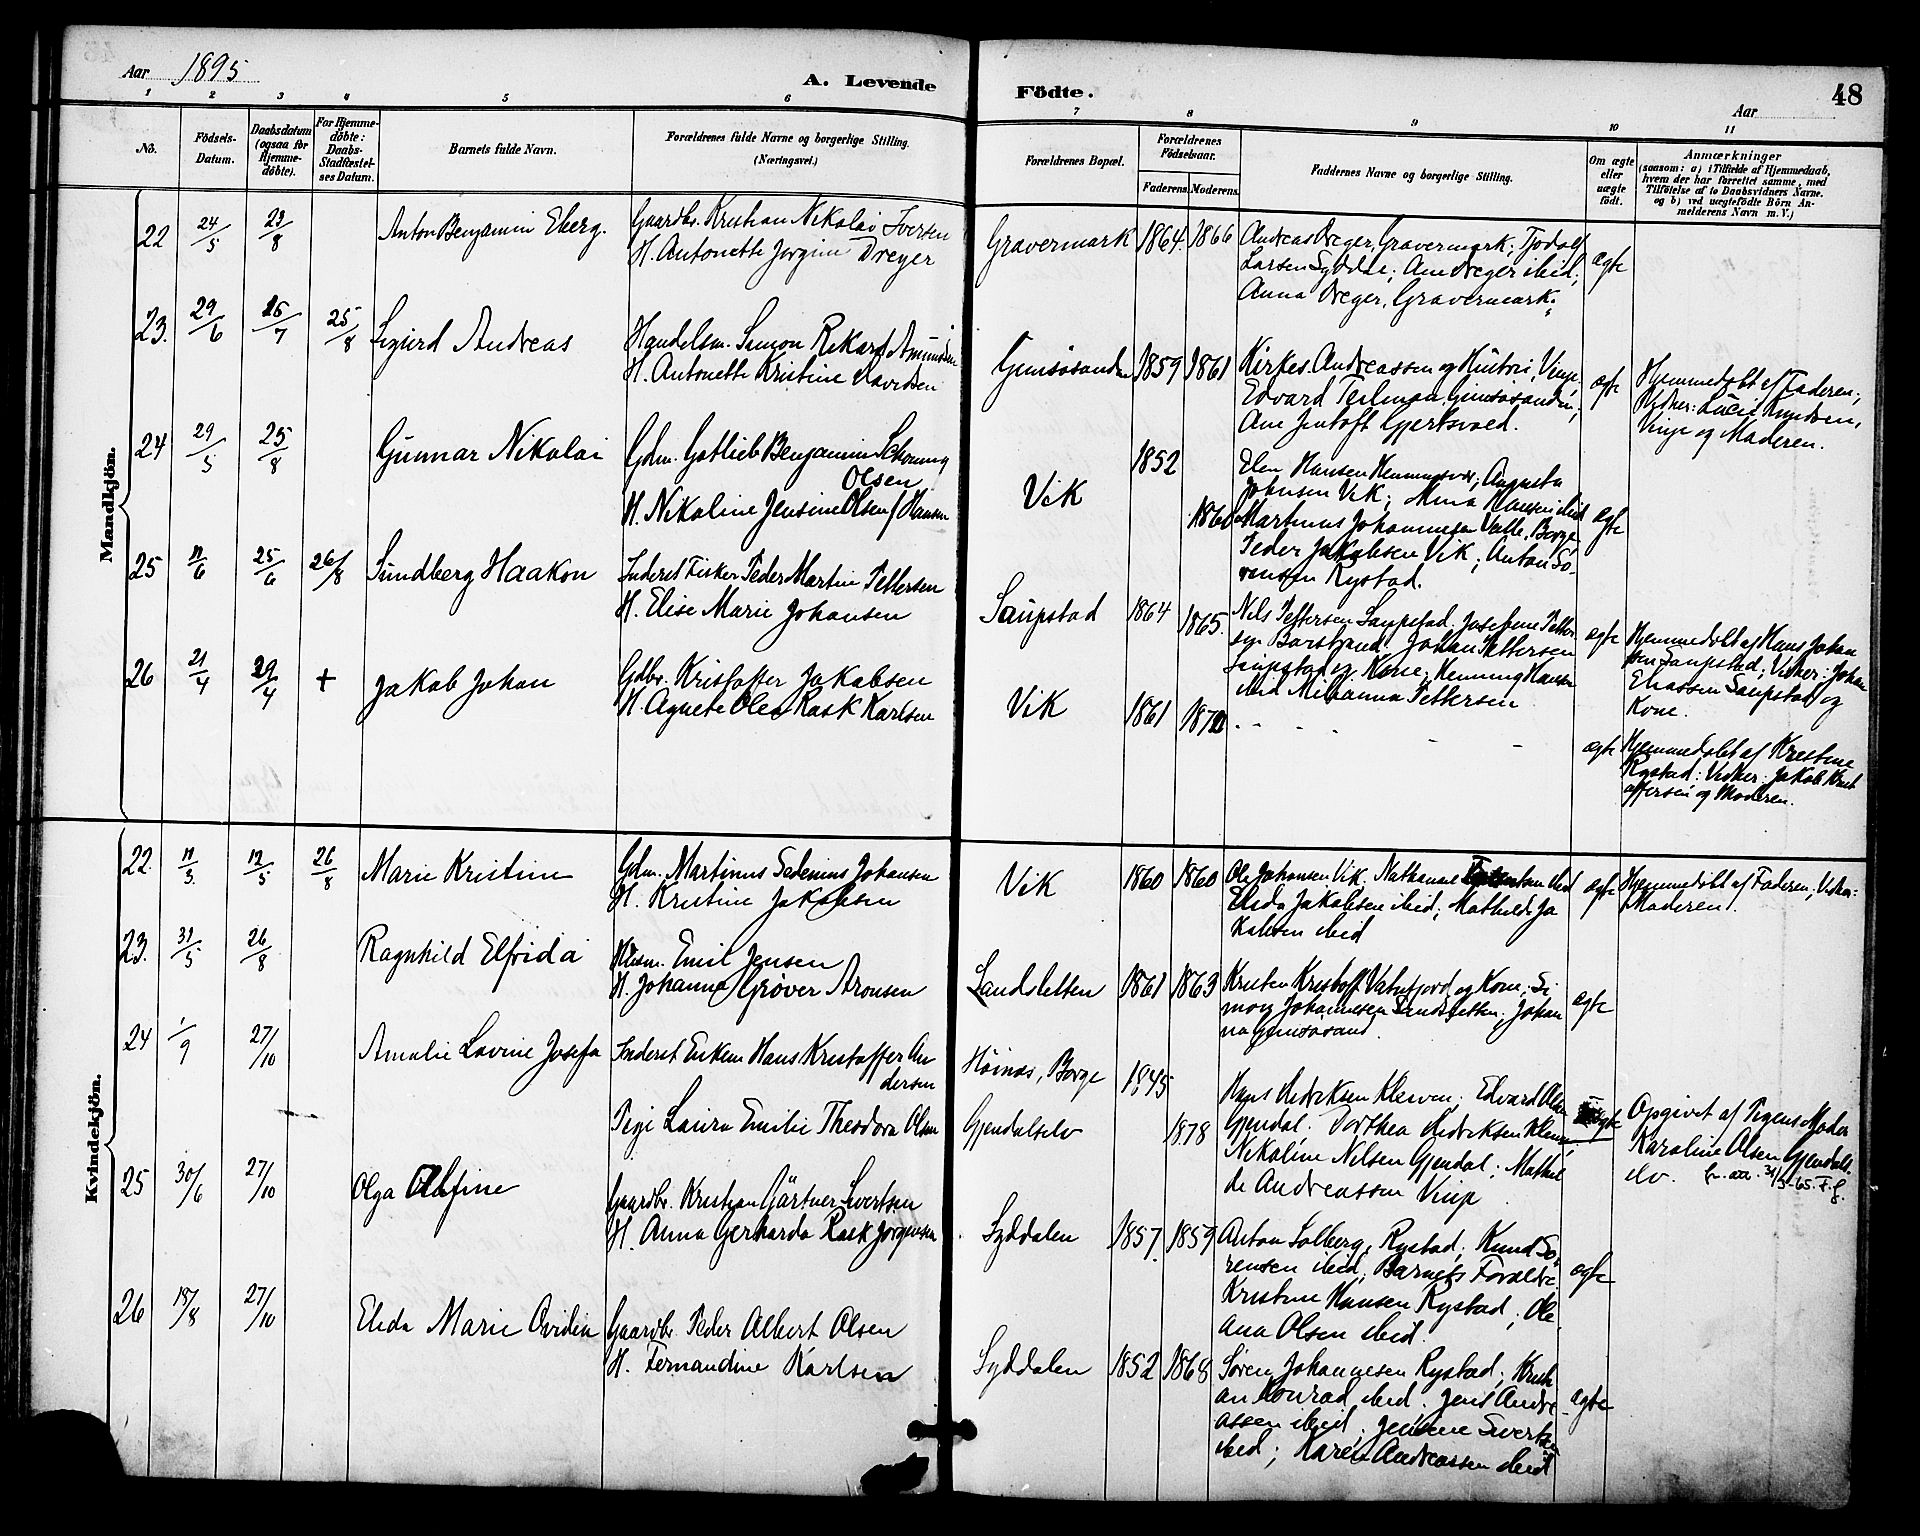 Aar 1895
A. Levende
Födte.
Aar
48
1 2 3 4 5 6 7 8 9 10 11
No.
Födsels-
Datum.
Daabsdatum
(ogsaa for
Hjemme-
döbte).
For Hjemme-
döbte:
Daabs-
Stadfæstel-
ses Datum.
Barnets fulde Navn.
Forældrenes fulde Navne og borgerlige Stilling.
(Næringsvei.)
Forældrenes Bopæl.
Forældrenes
Födselsaar.
Faderens.
Moderens.
Faddernes Navne og borgerlige Stilling.
Om ægte
eller
uægte
födt.
Anmærkninger
(saasom: a) i Tilfælde af Hjemmedaab,
hvem der har forrettet samme, med
Tilföielse af to Daabsvidners Navne.
og b) ved uægtefödte Börn An-
melderens Navn m. V.)
Mandkjön.
22 24/5 23/8 Anton Benjamin Eberg.
Gaardbr. Kristian Nikolai Iversen
H. Antonette Jørgine Dreyer
Gravermark 1864. 1866
Andreas Dreyer, Gravermark; Tjodolf
Larsen Syddal; Ane Dreyer ibid;
Anna Dreyer, Gravermark.
ægte
23. 29/6 25/7 25/8 Sigurd Andreas
Handelsm. Simon Rikard Amundsen
H. Antonette Kristine Davidsen
Gimsøsanden 1859 1861
Kirkes. Andreassen og Hustru, Vinje.
Edvard Teilman, Gimsøsanden;
Ane Jentoft Gjertsvold.
ægte
Hjemmedøbt af Faderen;
Vidner: Lucie Knudsen,
Vinje og Moderen.
24 29/5 25/8 Gunnar Nikolai
Gdm. Gotlieb Benjamin Schoning
Olsen
H. Nikoline Jensine Olsen f. Hansen
Vik 1852
Elen Hansen Henningsvær; Augusta
Johnsen Vik; Mina Hansen ibid
Martinus Johannesen Valle, Borge
Peder Jakobsen Vik; Anton Sø-
rensen Rystad.
ægte
25 11/6 25/6 26/8 Sundberg Haakon
Inderst Fisker Peder Martin Pettersen
H. Elise Marie Johansen
Saupstad 1864 1865.
Nils Pettersen Saupstad. Josefine Petter-
sen Barstrand. Johan Pettersen
Saupstad og Kone; Henning Hansen
ibid Milianna Pettersen
ægte
Hjemmedøbt af Hans Johan
sen Saupstad; Vidner: Johan
Eliassen Saupstad og
Kone.
26 21/4 29/4 + Jakob Johan
Gdbr. Kristoffer Jakobsen
H. Agnete Olea Rask Karlsen
Vik 1861
- - - - -
ægte
Hjemmedøbt af Kristine
Rystad: Vidner: Jakob Krist
offersen og Moderen.
Kvindekjön.
22. 12/5 26/8 Marie Kristine
Gdm. Martinus Sedenius Johansen
H. Kristine Jakobsen
Vik 1860 1860
Ole Johansen Vik. Nathanael ibid
Elida Jakobsen ibid; Mathilde Ja
kobsen ibid
ægte
Hjemmedøbt af Faderen; Vidne:
Moderen.
23. 31/5 26/8 Ragnhild Elfrida
Husm. Emil Jensen
H. Johanna Grøver Aronsen
Sandsletten 1861 1863
Kristen Kristoff. Vatnfjord og Kone; Si
mon Johannesen Sandsletten; Johan
na Gimsøsand.
ægte
24 1/9 27/10 Amalie Lovine Josefa
Inderst Enkem. Hans Kristoffer An
dersen
Pige Laura Emilie Theodora Olsen
Høinæs, Borge 1845
Gjendalselv 1878
Hans Hedriksen Kleiven; Edvard Olsen
Gjendal. Dorthea Hedriksen Kleiven,
Nikoline Nilsen Gjendal; Mathil
de Andreassen Vinje
Opgivet af Pigens Moder
Karoline Olsen Gjendals
elv. fr. att. 31/3-65. F.f.
25 30/6 27/10 Olga Alfine
Gaardbr. Kristian Gärtner Sivertsen
H. Anna Gerharda Rask Jørgensen
Syddalen 1857. 1859
Anton Solberg, Rystad; Knud Sø-
rensen ibid; Barnets Forældre
Kristine Hansen Rystad; Ole
ana Olsen ibid.
ægte
26 18/8 27/10 Elida Marie Ovidia
Gaardbr. Peder Albert Olsen
H. Fernandine Karlsen
Syddalen 1852 1868
Søren Johannesen Rystad; Kristi
an Konrad ibid. Jens Andre-
assen ibid; Jensine Sivertsen
ibid; Karen Andreassen ibid
ægte